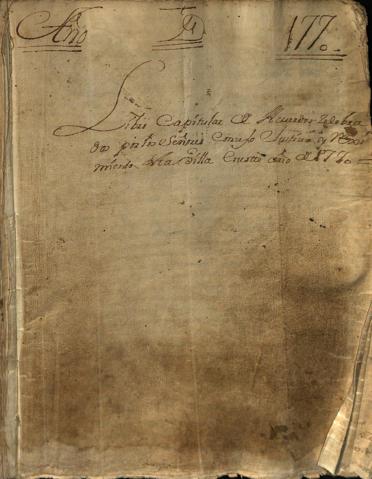 Año De 1770.
Libro Capitular de Acuerdos Zelebra
dos por los Señores Conzejo Justicia y Reximiento
miento de la Villa en este año de 1770 =